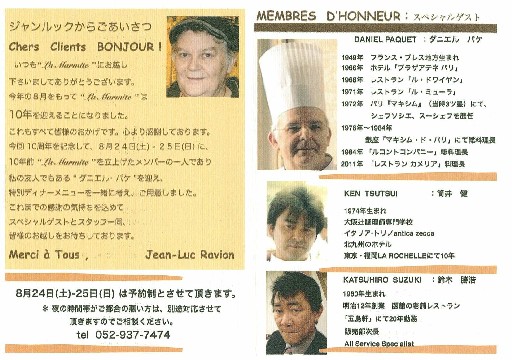 ジャンルックからごあいさつ
Chers Clients BONJOUR !
いつも“La Marmite”にお越し
下さいましてありがとうございます。
今年の8月をもって“La Marmite”は
10年を迎えることになりました。
これもすべて皆様のおかげです。心より感謝しております。
今回10周年を記念して、8月24日(土)-25日(日)に、
10年前“La Marmite”を立上げたメンバーの一人であり
私の友人でもある“ダニエル・パケ”を迎え、
特別ディナーメニューを一緒に考え、ご用意しました。
これまでの感謝の気持ちを込めて
スペシャルゲストとスタッフ一同、
皆様のお越しをお待ちしております。
Merci à Tous,
Jean-Luc Ravion
8月24日(土)-25日(日) は予約制とさせて頂きます。
※ 夜の時間帯がご都合の悪い方は、別途対応させて
頂きますのでご相談ください。
tel 052-937-7474
MEMBRES D'HONNEUR : スペシャルゲスト
DANIEL PAQUET : ダニエル パケ
1949年 フランス・ブレス地方生まれ
1966年 ホテル「プラザアテネ パリ」
1968年 レストラン「ル・ドワイヤン」
1971年 レストラン「ル・ミューラ」
1972年 パリ『マキシム』(当時3ツ星)にて、
シェフソシエ、スーシェフを歴任
1976年~1984年
銀座「マキシム・ド・パリ」にて総料理長
1984年「ルコントコンパニー」総料理長
2011年「レストラン カメリア」料理長
KEN TSUTSUI : 筒井 健
1974年生まれ
大阪辻調理師専門学校
イタリア・トリノ antica zecca
北九州のホテル
東京・福岡LA ROCHELLEにて10年
KATSUHIRO SUZUKI : 鈴木 勝浩
1960年生まれ
明治12年創業 函館の老舗レストラン
「五島軒」にて20年勤務
販売部次長
All Service Specialist